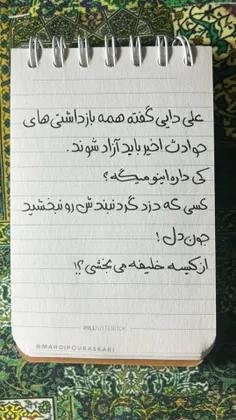 علی دایی گفته همه بازداشتی های
حوادث اخیر باید آزاد شوند.
کی داره اینو میگه؟
کسی که دزد گردنبندش رو نبخشید
جون دل!
از کیسه خلیفه می بخشی؟!
PILLNOTEBOOK
@MAHDIPOURASKARI